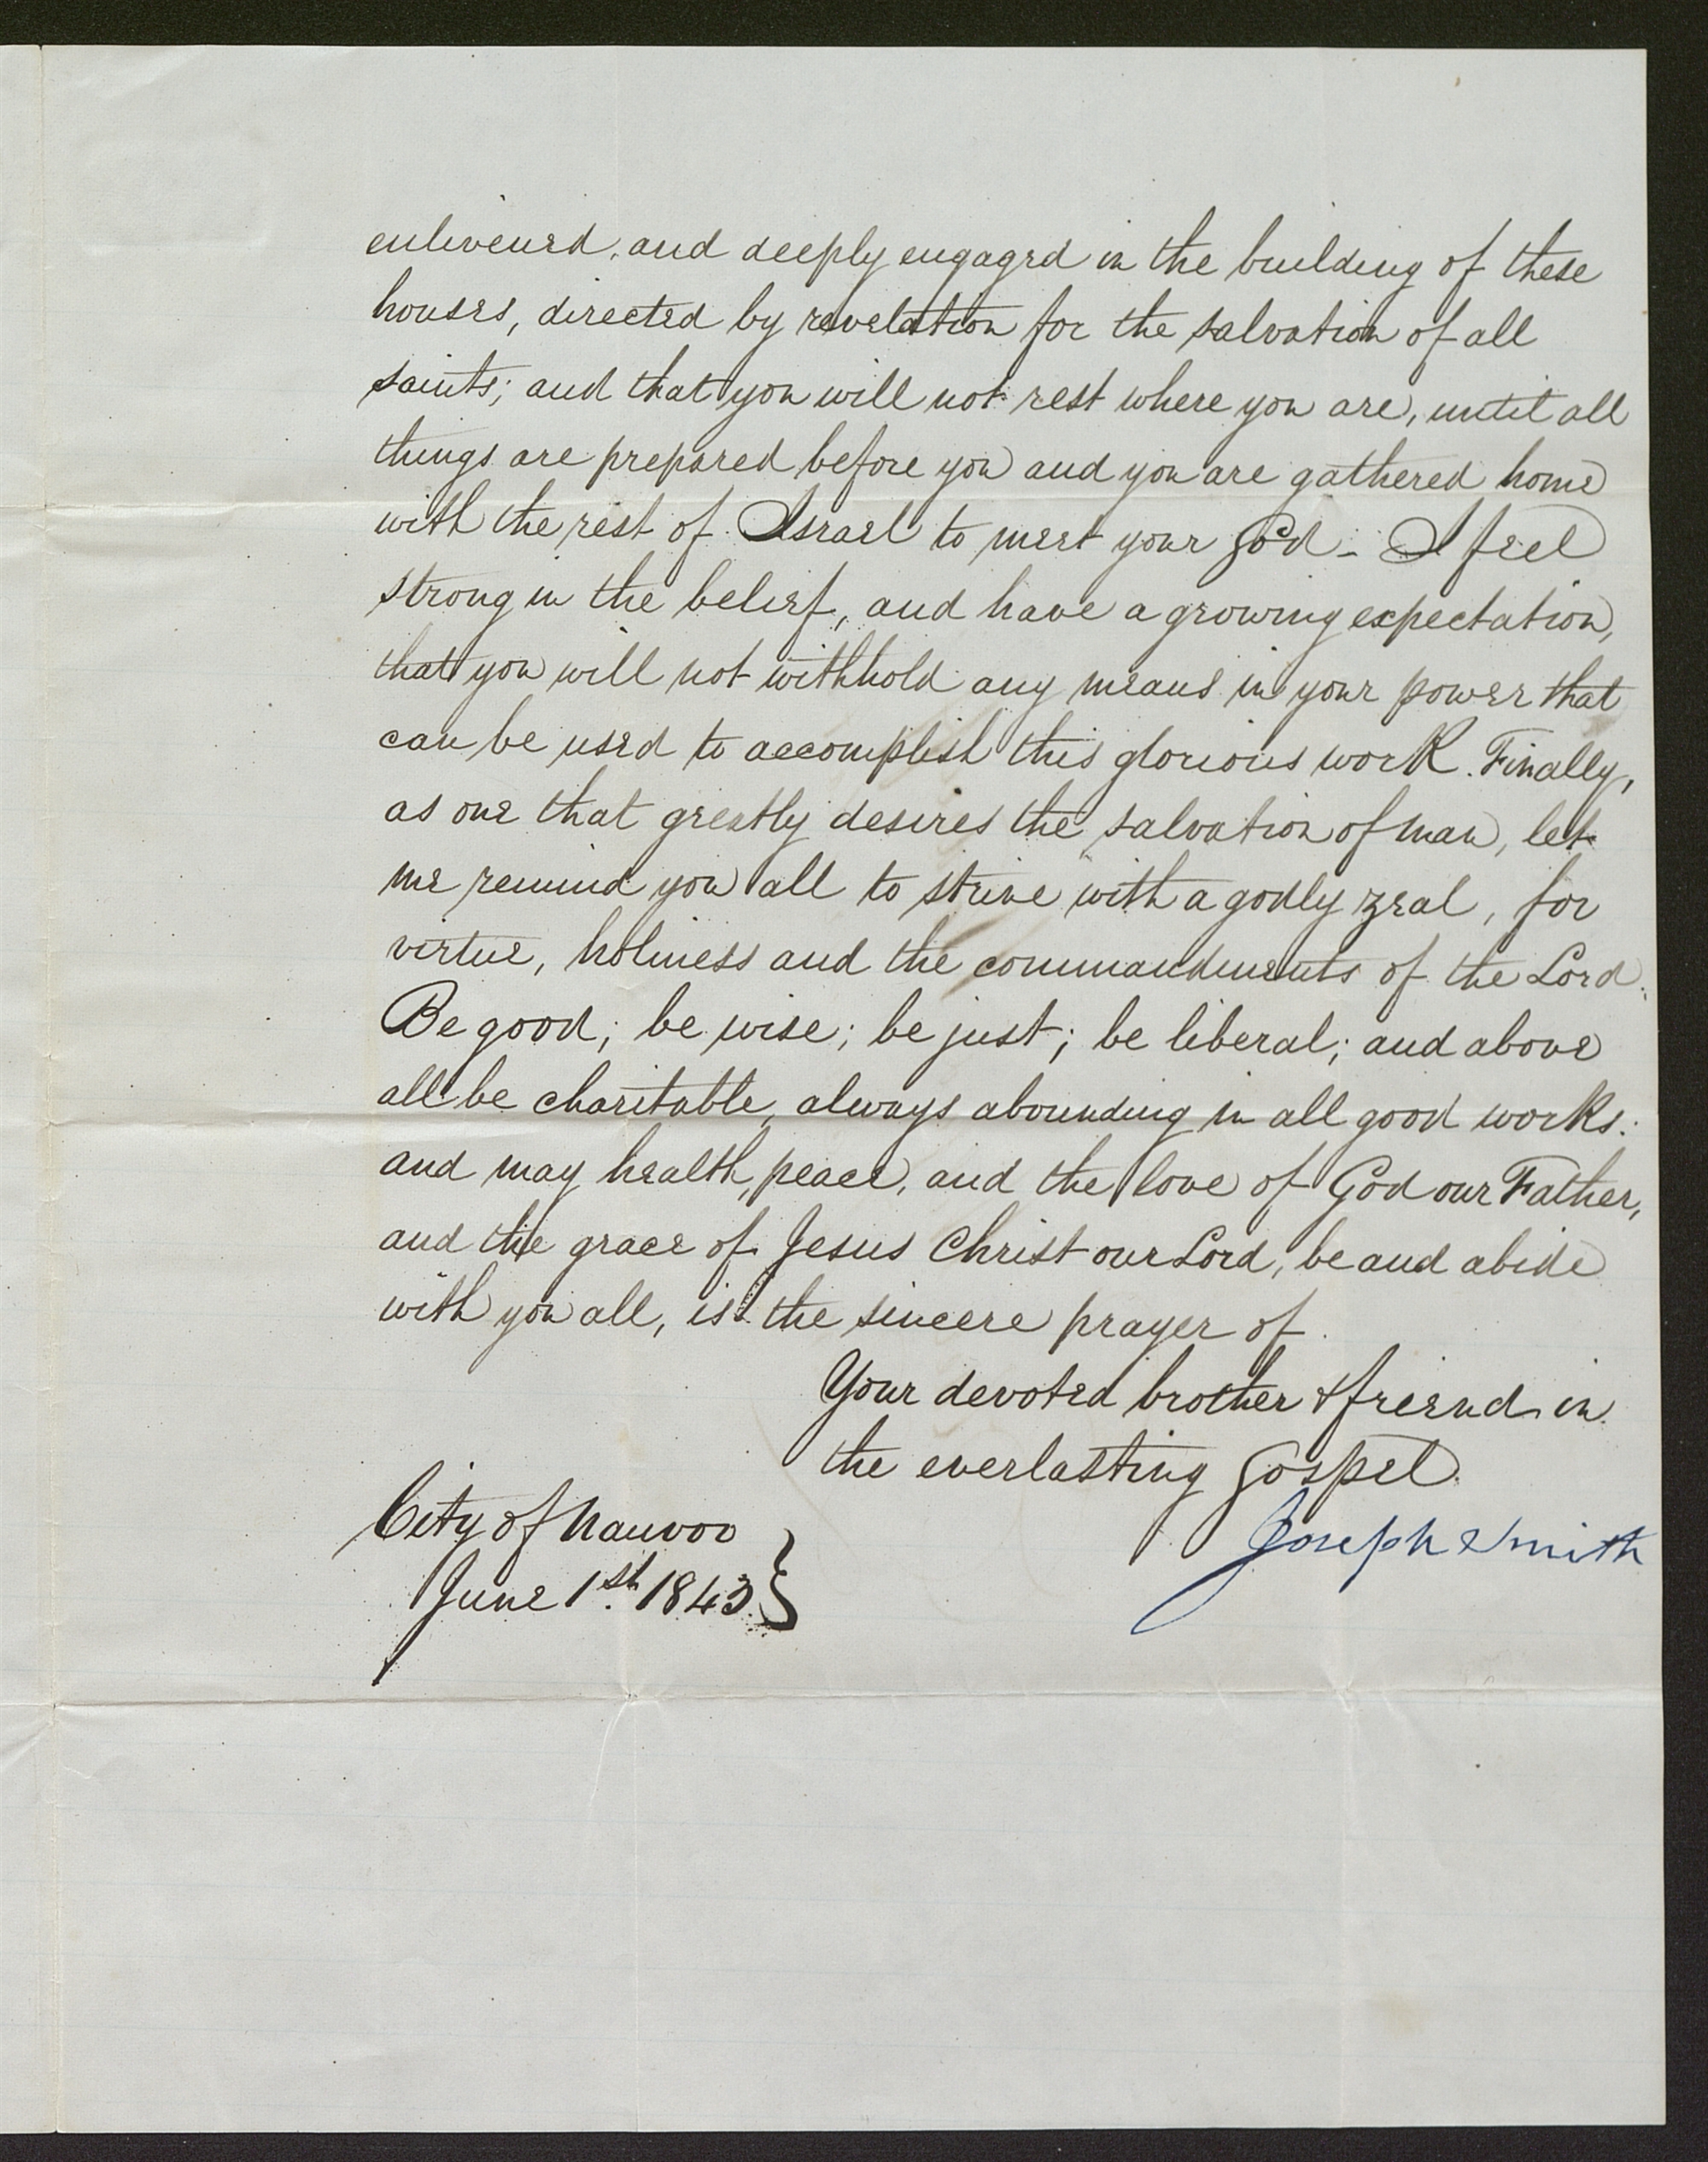 enlivened, and deeply engaged in the building of these
houses, directed by revelation for the salvation of all
saints; and that you will not rest where you are, until all
things are prepared before you and you are gathered home
with the rest of Israel to meet your God - I feel
strong in the belief, and have a growing expectation,
that you will not withhold any means in your power that
can be used to accomplish this glorious work. Finally,
as one that greatly desires the salvation of man, let
me remind you all to strive with a godly zeal, for
virtue, holiness and the commandments of the Lord.
Be good; be wise; be just; be liberal; and above
all be charitable, always abounding in all good works:
and may health, peace, and the love of God our Father,
and the grace of Jesus Christ our Lord, be and abide
with you all, is the sincere prayer of
Your devoted brother & friend in
the everlasting Gospel.
Joseph Smith
City of Nauvoo
June 1st. 1843. }